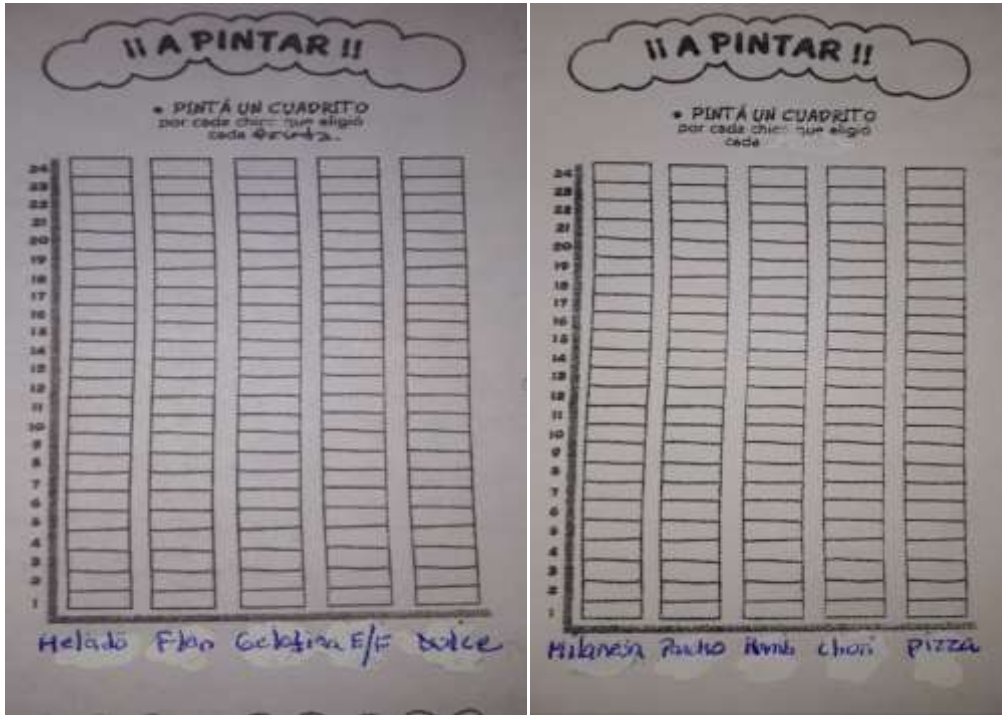 ¡¡ A PINTAR !!
• PINTÁ UN CUADRITO
por cada chico que eligió
cada
24
23
22
21
20
19
18
17
16
15
14
13
12
11
10
9
8
7
6
5
4
3
2
1
Helado Flan Gelatina E/F Dulce
¡¡ A PINTAR !!
• PINTÁ UN CUADRITO
por cada chico que eligió
cada
24
23
22
21
20
19
18
17
16
15
14
13
12
11
10
9
8
7
6
5
4
3
2
1
Milanesa Pancho Hamb Chori Pizza